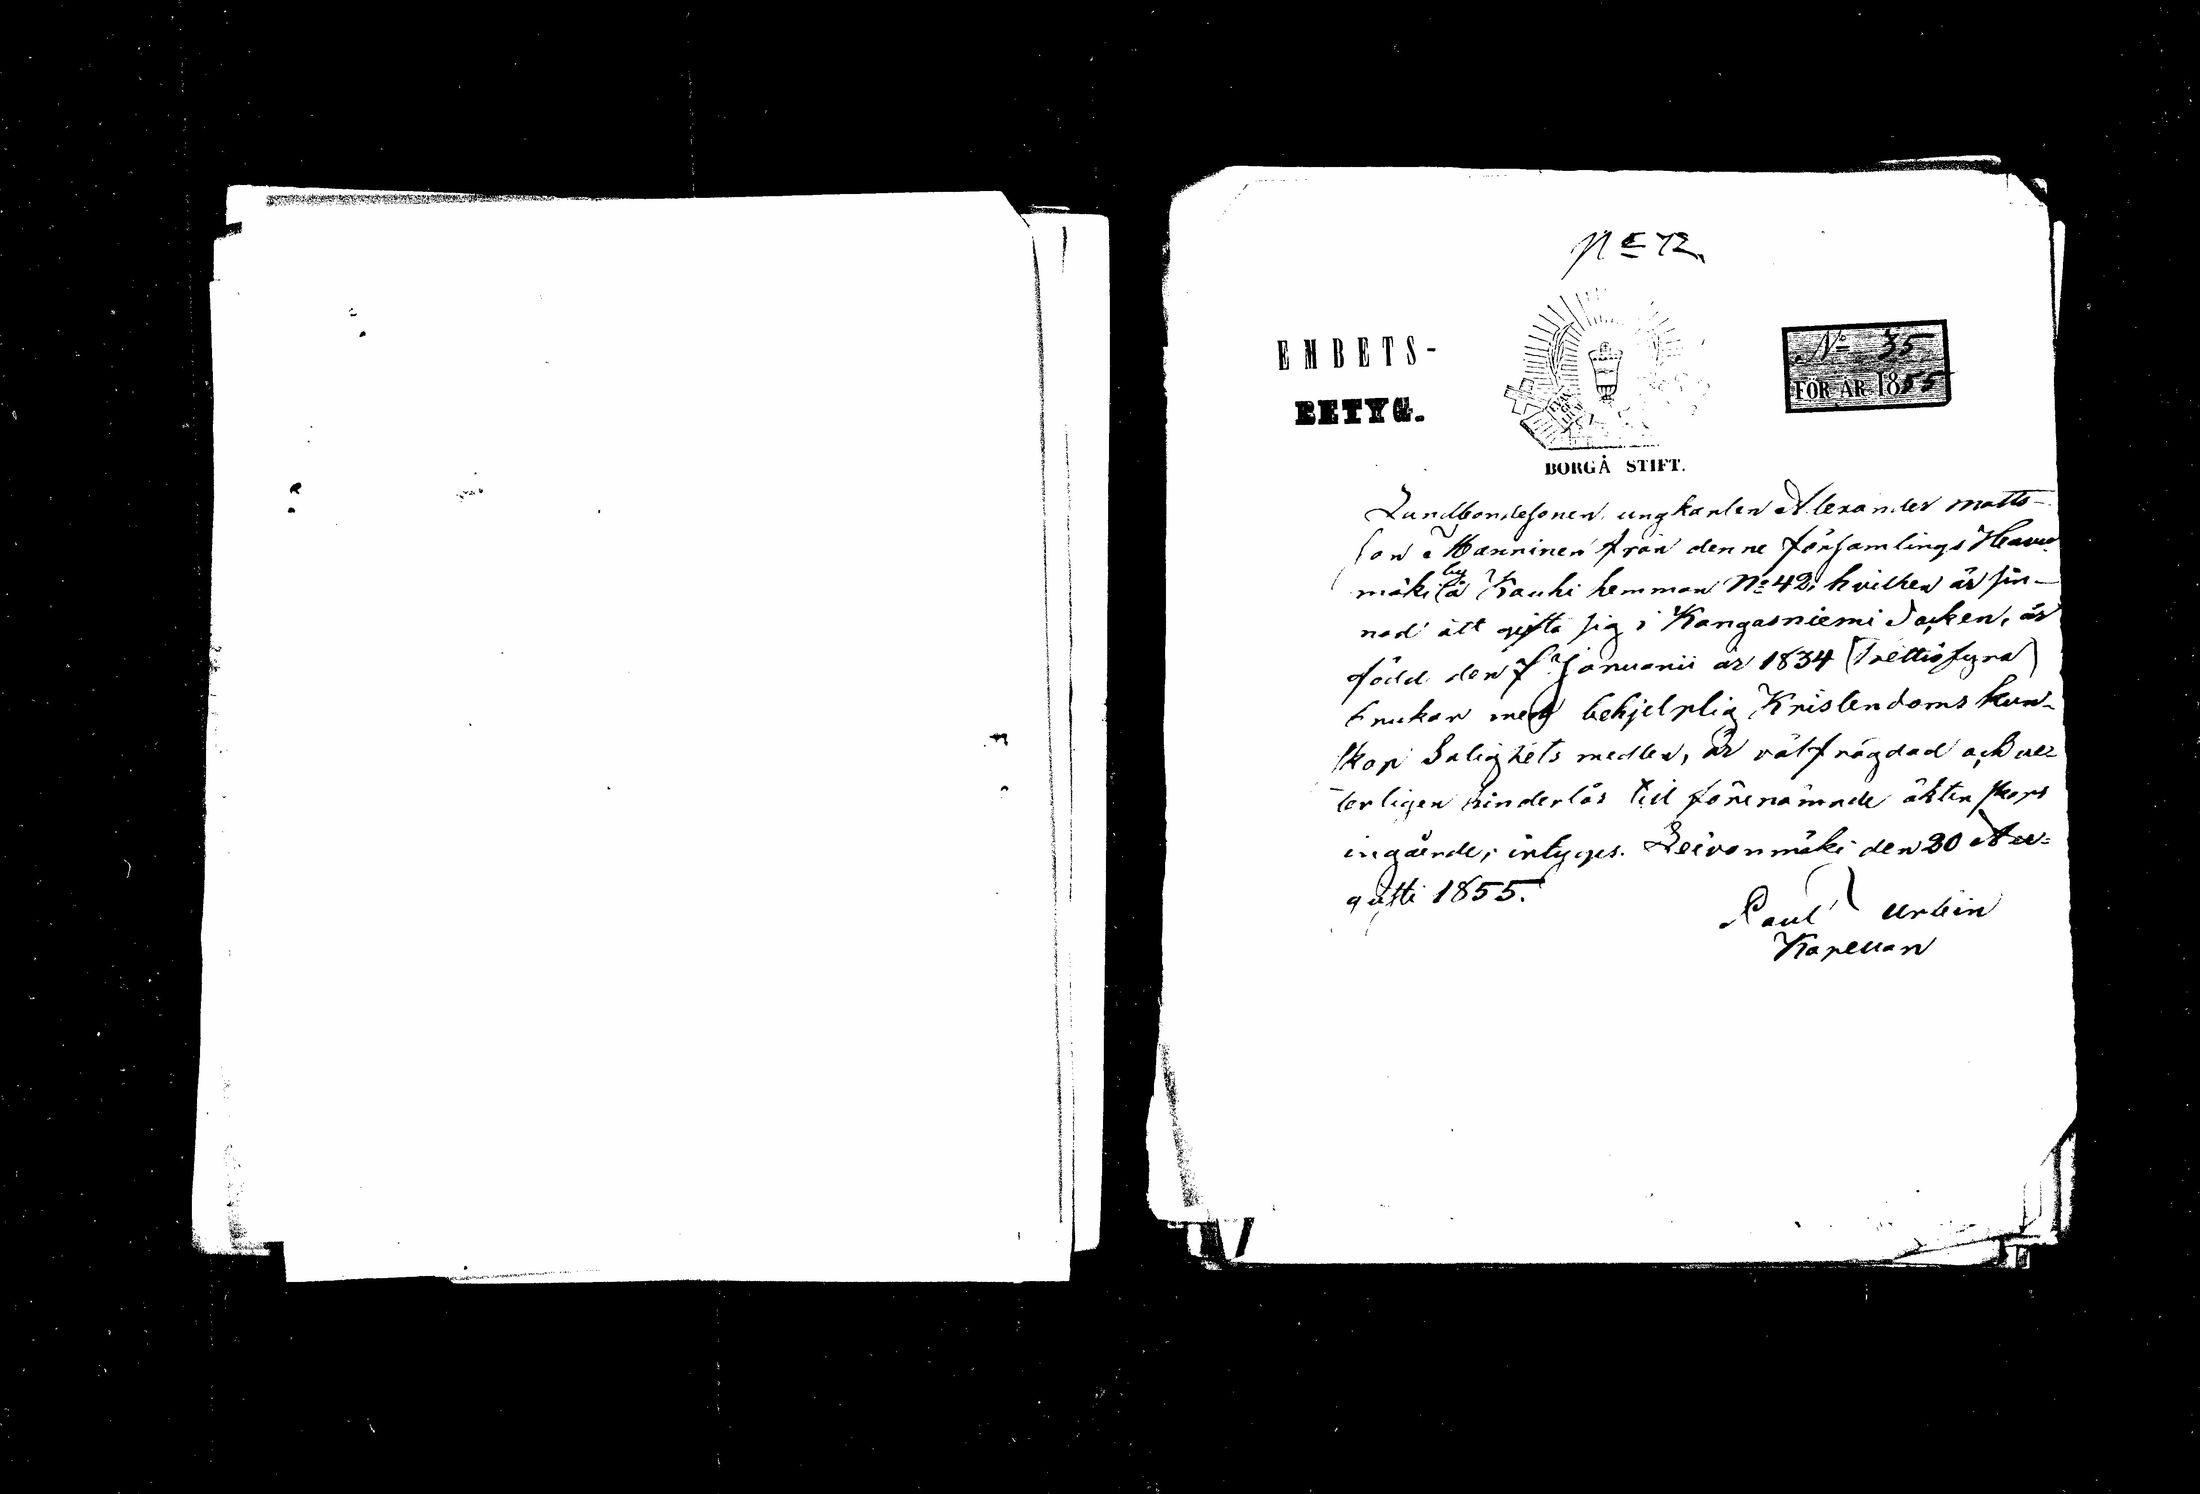 No 72.
EMBETS-
BETYG.
EVAN
GE
LIUM
BORGÅ STIFT.
No 35
FÖR ÅR 1855
Landbondesonen, ungkarlen Alexander Matts-
son Manninen från denne församlings Havu-
mäki by å Kauhi hemman No 42, hvilken är sin-
nad att gifta sig i Kangasniemi Socken, är
född den 7 Januarii år 1834 (Trettiofyra)
brukar med behjelplig Kristendoms kun-
skap Salighets medlen, är välfrägdad och ve-
terligen hinderlös till förenämnde äktenskaps
ingående; intygas. Leivonmäki den 20 Au-
gusti 1855.
Paul Urbin
Kapellan